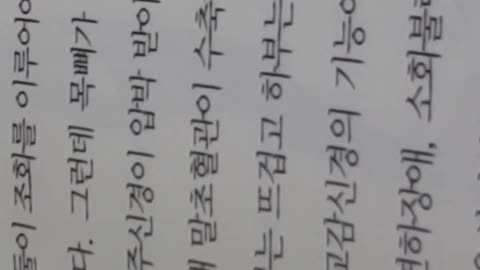 들이 조화를 이루어야
다. 그런데 목뼈가
주신경이 압박 받아
말초혈관이 수축
는 뜨겁고 하부는
교감신경의 기능이
전하장애, 소화불